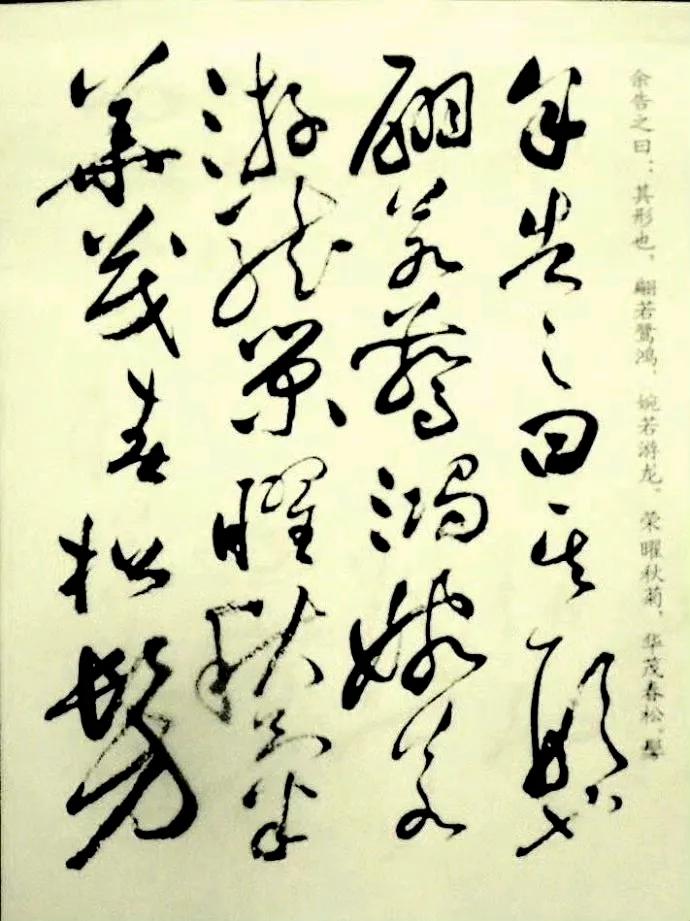 余告之曰：其形也，翩若驚鸿，婉若游龙。荣曜秋菊，华茂春松。髣
余告之曰其形也
翩若驚鴻婉若
游龍榮曜秋菊
華茂春松髣